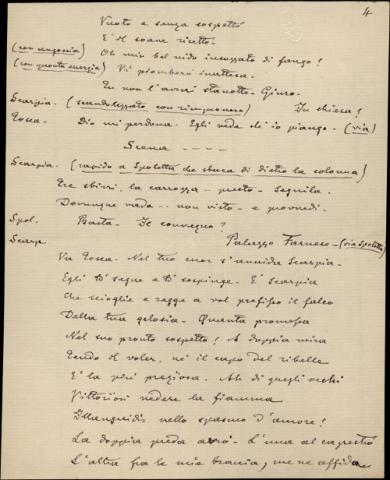 4
Vuoto e senza sospetto
È il soave ricetto.
Oh mio bel nido insozzato di fango!
(con angoscia)
(con pronta energia) Vi piomberò inattesa.
Tu non l'avrai stanotte. Giuro.
Scarpia. (scandolezzato con rimprovero) In chiesa!
Tosca. Dio mi perdona. Egli vede ch'io piango. (via)
Scena - - - -
Scarpia. (rapido a Spoletta che sbuca di dietro la colonna)
Tre sbirri, la carrozza - presto - seguila.
Dovunque vada - non visto - e provvedi.
Spol. Basta. Il convegno?
Scarp. Palazzo Farnese - (via Spoletta)
Va Tosca. Nel tuo cuor s'annida Scarpia.
Egli ti segue e ti sospinge. È Scarpia
che scioglie e regge a vol prefisso il falco
Della tua gelosia. Quanta promessa
Nel suo pronto sospetto! A doppia mira
tendo il voler, nè il capo del ribelle
È la più preziosa. Ah di quegli occhi
Vittoriosi vedere la fiamma
Illanguidir nello spasmo d'amore!
La doppia preda avrò. L'una al capestro
L'altra fra le mie braccia, me ne affido.